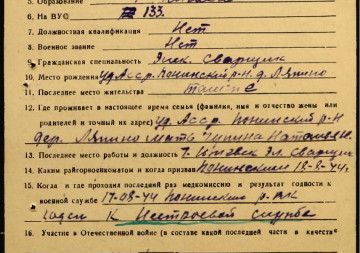 5. Образование
6. На ВУС 133.
7. Должностная квалификация Нет
8. Военное звание Нет
9. Гражданская специальность Элек. Сварщик
10. Место рождения Уд Асср. Понинский р-н. д. Ляпино
11. Последнее место жительства
12. Где проживает в настоящее время семья (фамилия, имя и отчество жены или
родителей и точный их адрес) Уд Асср. Понинский р-н
дер. Ляпино мать
13. Последнее место работы и должность г. Ижевск Эл сварщик
14. Каким райгорвоенкоматом и когда призван Понинским 18-8-44г.
15. Когда и где проходил последний раз медкомиссию и результат годности к
военной службе 17-08-44 Понинским р-вк
годен к Нестроевой службе
16. Участие в Отечественной войне (в составе какой последней части в качестве